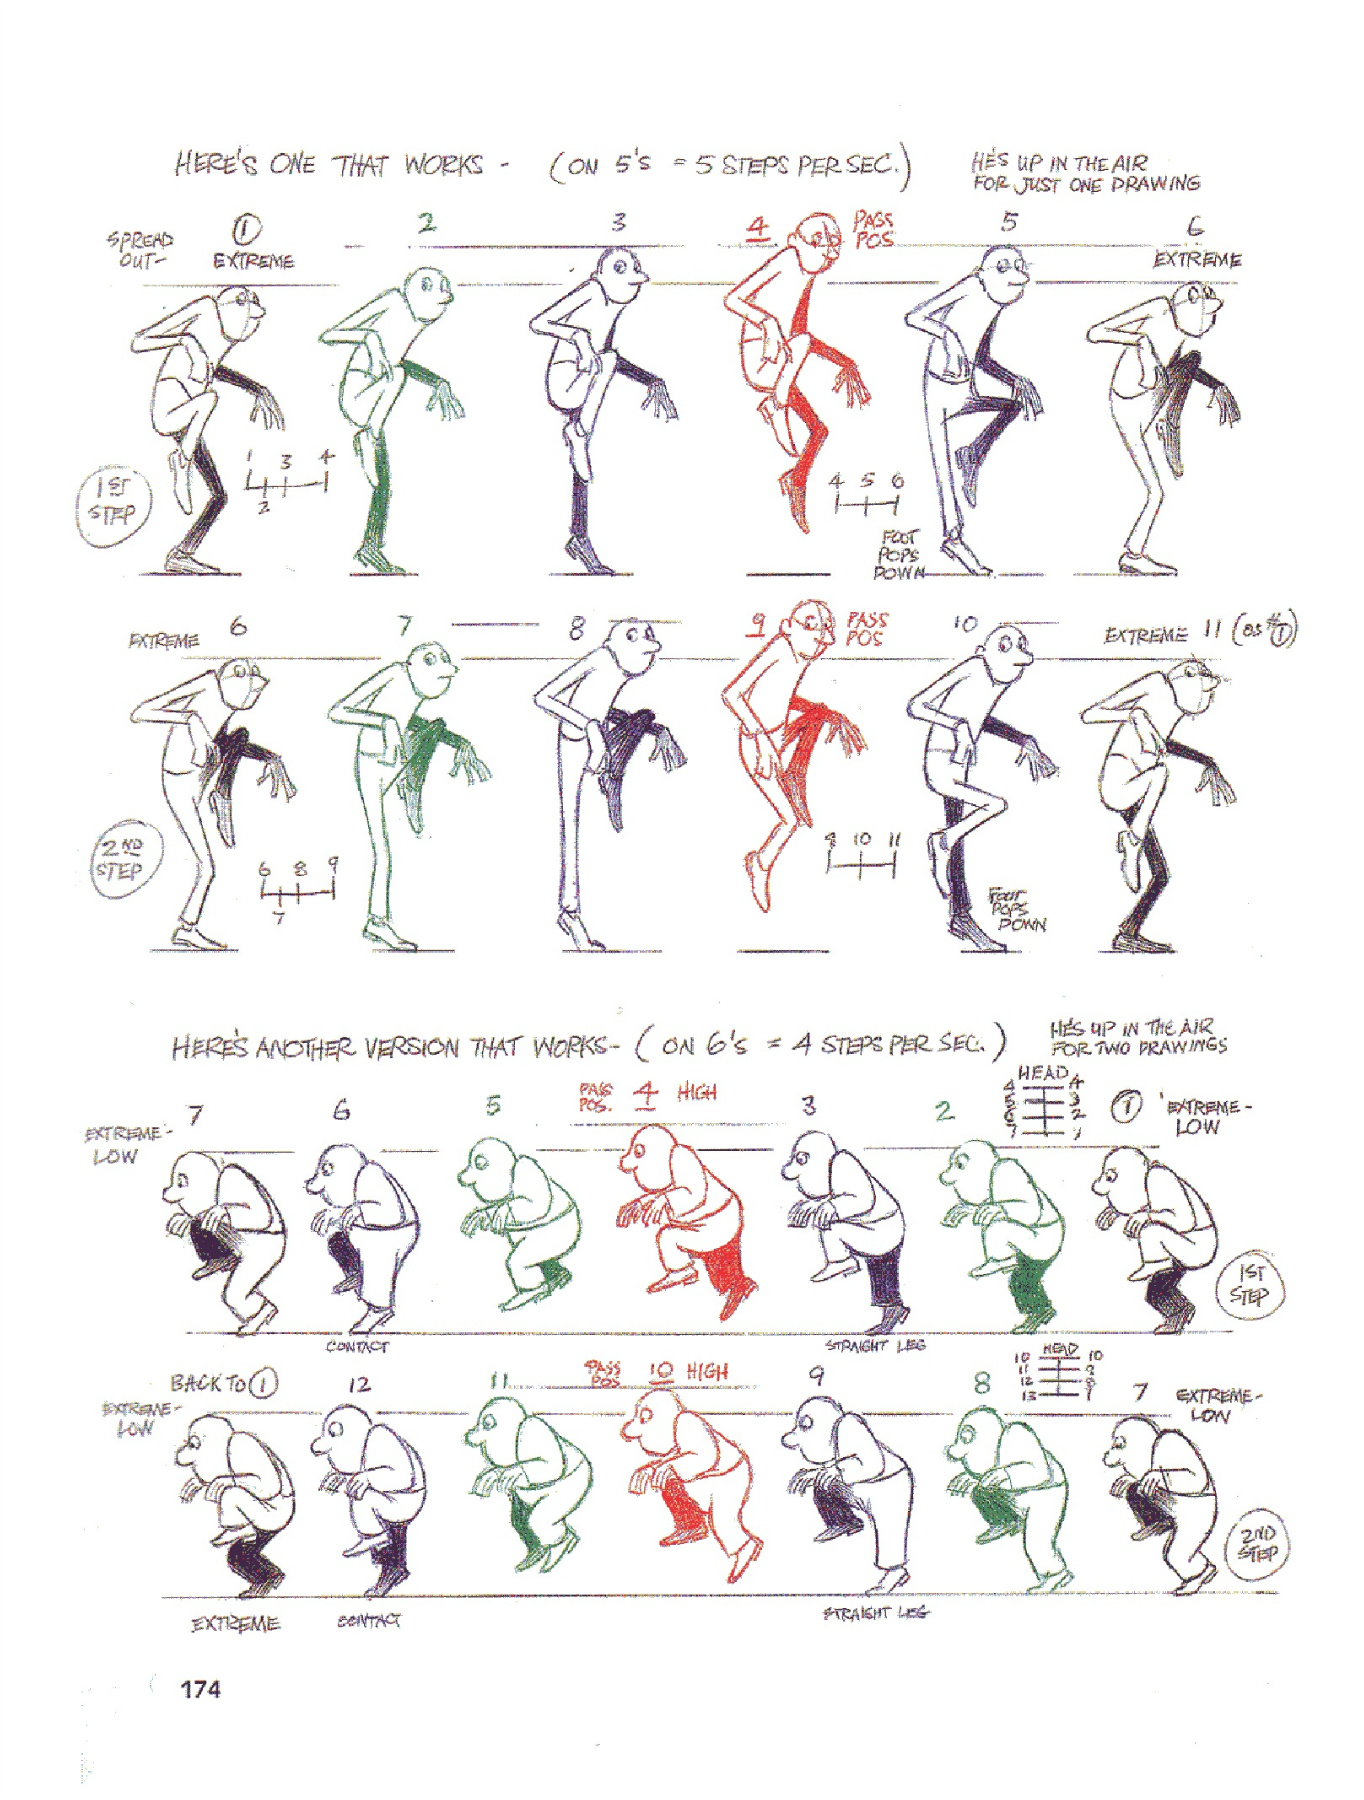 HERE'S ONE THAT WORKS - (ON 5'S = 5 STEPS PER SEC.)
HE'S UP IN THE AIR
FOR JUST ONE DRAWING
SPREAD
OUT-
1
EXTREME
2
3
4
PASS
POS
5
6
EXTREME
1ST
STEP
1 3 4
2
4 5 6
FOOT
POPS
DOWN
EXTREME
6
7
8
9
PASS
POS
10
EXTREME 11 (AS #1)
2ND
STEP
6 8 9
7
9 10 11
FOOT
POPS
DOWN
HERE'S ANOTHER VERSION THAT WORKS- (ON 6'S = 4 STEPS PER SEC.)
HE'S UP IN THE AIR
FOR TWO DRAWINGS
EXTREME-
LOW
7
6
5
PASS
POS.
4 HIGH
3
2
HEAD
4 4
5 3
6 2
7 1
1
EXTREME-
LOW
1ST
STEP
CONTACT
STRAIGHT LEG
BACK TO 1
EXTREME-
LOW
12
11
PASS
POS
10 HIGH
9
8
HEAD
10 10
11 9
12 8
13 7
7
EXTREME-
LOW
2ND
STEP
EXTREME
CONTACT
STRAIGHT LEG
174